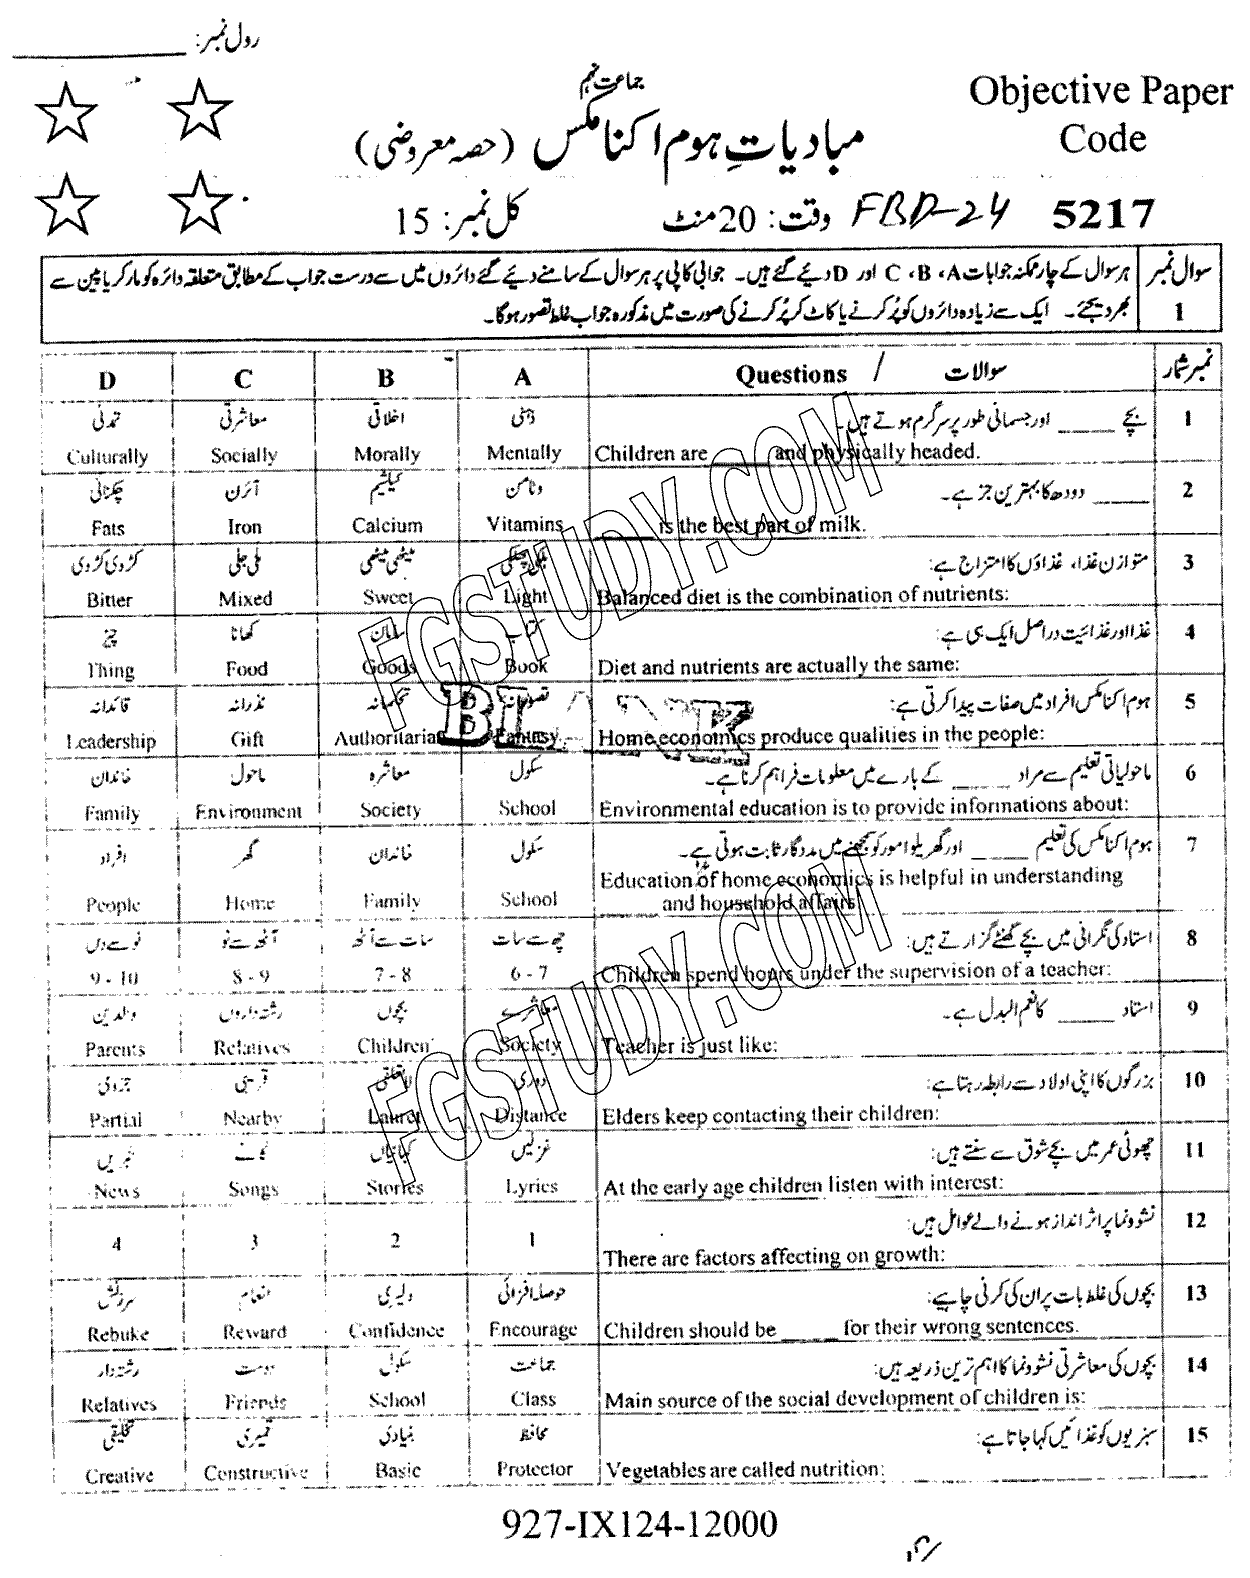 رول نمبر: ____________
جماعت نہم
Objective Paper
Code
مبادیاتِ ہوم اکنامکس (حصہ معروضی)
5217
FBD-24
وقت: 20 منٹ
کل نمبر: 15
سوال نمبر 1
ہر سوال کے چار ممکنہ جوابات A، B، C اور D دیئے گئے ہیں۔ جوابی کاپی پر ہر سوال کے سامنے دیئے گئے دائروں میں سے درست جواب کے مطابق متعلقہ دائرہ کو مارکر یا پین سے
بھر دیجئے۔ ایک سے زیادہ دائروں کو پُر کرنے یا کاٹ کر پُر کرنے کی صورت میں مذکورہ جواب غلط تصور ہوگا۔
نمبر شمار سوالات / Questions A B C D
1 بچے _____ اور جسمانی طور پر سرگرم ہوتے ہیں۔ ذہنی اخلاقی معاشرتی تمدنی
Children are _____ and physically headed. Mentally Morally Socially Culturally
2 _____ دودھ کا بہترین جز ہے۔ وٹامن کیلشیم آئرن چکنائی
_____ is the best part of milk. Vitamins Calcium Iron Fats
3 متوازن غذا، غذاؤں کا امتزاج ہے: ہلکی پھلکی میٹھی میٹھی ملی جلی کڑوی کڑوی
Balanced diet is the combination of nutrients: Light Sweet Mixed Bitter
4 غذا اور غذائیت دراصل ایک ہی ہے: کتاب سامان کھانا چیز
Diet and nutrients are actually the same: Book Goods Food Thing
5 ہوم اکنامکس افراد میں صفات پیدا کرتی ہے: تحکمانہ نذرانہ قائدانہ
Home economics produce qualities in the people: Fantasy Authoritarian Gift Leadership
6 ماحولیاتی تعلیم سے مراد _____ کے بارے میں معلومات فراہم کرنا ہے۔ سکول معاشرہ ماحول خاندان
Environmental education is to provide informations about: School Society Environment Family
7 ہوم اکنامکس کی تعلیم _____ اور گھریلو امور کو سمجھنے میں مددگار ثابت ہوتی ہے۔ سکول خاندان گھر افراد
Education of home economics is helpful in understanding
_____ and household affairs. School Family Home People
8 استاد کی نگرانی میں بچے گھنٹے گزارتے ہیں: چھ سے سات سات سے آٹھ آٹھ سے نو نو سے دس
Children spend hours under the supervision of a teacher: 6 - 7 7 - 8 8 - 9 9 - 10
9 استاد _____ کا نعم البدل ہے۔ معاشرے بچوں رشتہ داروں والدین
Teacher is just like: Society Children Relatives Parents
10 بزرگوں کا اپنی اولاد سے رابطہ رہتا ہے: دوری لاتعلقی قریبی جزوی
Elders keep contacting their children: Distance Nearby Partial
11 چھوٹی عمر میں بچے شوق سے سنتے ہیں: غزلیں کہانیاں گانے خبریں
At the early age children listen with interest: Lyrics Stories Songs News
12 نشوونما پر اثر انداز ہونے والے عوامل ہیں: 1 2 3 4
There are factors affecting on growth:
13 بچوں کی غلط بات پر ان کی کرنی چاہیے: حوصلہ افزائی دلیری انعام سرزنش
Children should be _____ for their wrong sentences. Encourage Confidence Reward Rebuke
14 بچوں کی معاشرتی نشوونما کا اہم ترین ذریعہ ہیں: جماعت سکول دوست رشتہ دار
Main source of the social development of children is: Class School Friends Relatives
15 سبزیوں کو غذائیں کہا جاتا ہے: محافظ بنیادی تعمیری تخلیقی
Vegetables are called nutrition: Protector Basic Constructive Creative
FGSTUDY.COM
BLANK
FGSTUDY.COM
927-IX124-12000